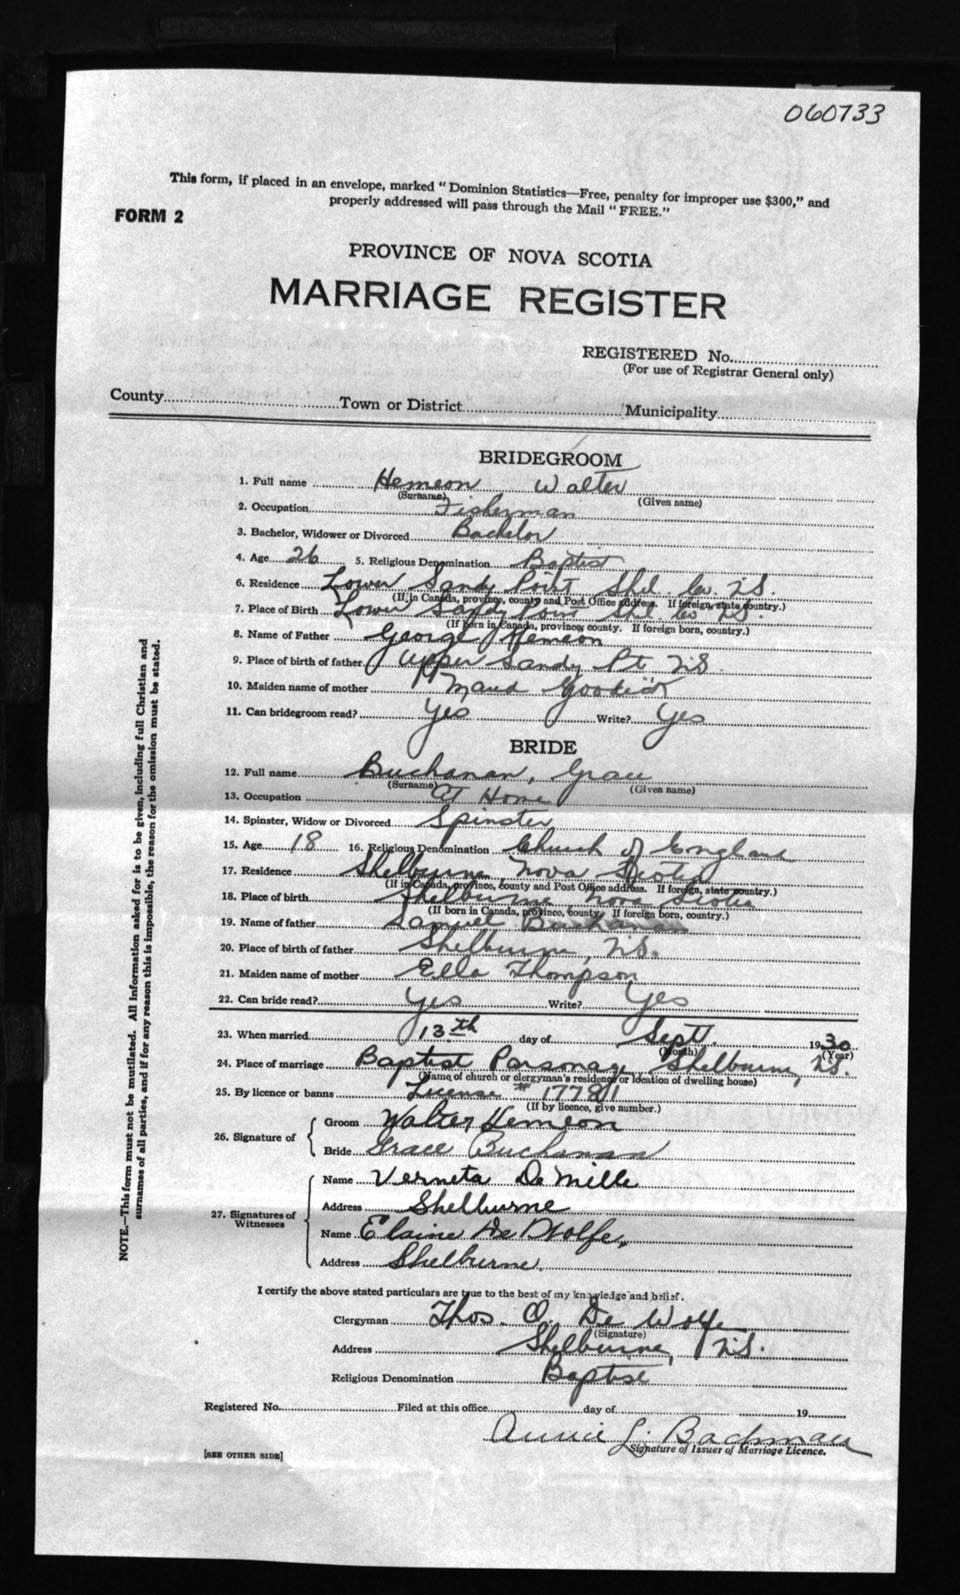 060733
This form, if placed in an envelope, marked "Dominion Statistics—Free, penalty for improper use $300," and
properly addressed will pass through the Mail "FREE."
FORM 2
PROVINCE OF NOVA SCOTIA
MARRIAGE REGISTER
REGISTERED No.
(For use of Registrar General only)
County Town or District Municipality
BRIDEGROOM
1. Full name Hemeon Walter
(Surname) (Given name)
2. Occupation Fisherman
3. Bachelor, Widower or Divorced Bachelor
4. Age 26 5. Religious Denomination Baptist
6. Residence Lower Sandy Point Shel. Co. N.S.
(If in Canada, province, county and Post Office address. If foreign, state country.)
7. Place of Birth Lower Sandy Point Shel. Co. N.S.
(If born in Canada, province, county. If foreign born, country.)
8. Name of Father George Hemeon
9. Place of birth of father Upper Sandy Pt. N.S.
10. Maiden name of mother Maud
11. Can bridegroom read? Yes Write? Yes
BRIDE
12. Full name Buchanan, Grace
(Surname) (Given name)
13. Occupation At Home
14. Spinster, Widow or Divorced Spinster
15. Age 18 16. Religious Denomination Church of England
17. Residence Shelburne, Nova Scotia
(If in Canada, province, county and Post Office address. If foreign, state country.)
18. Place of birth Shelburne, Nova Scotia
(If born in Canada, province, county. If foreign born, country.)
19. Name of father Samuel Buchanan
20. Place of birth of father Shelburne, N.S.
21. Maiden name of mother Ella Thompson
22. Can bride read? Yes Write? Yes
23. When married 13th day of Sept. 1930
(Month) (Year)
24. Place of marriage Baptist Parsonage Shelburne, N.S.
(Name of church or clergyman's residence or location of dwelling house)
25. By licence or banns License #
(If by licence, give number.)
26. Signature of
Groom Walter Hemeon
Bride Grace Buchanan
27. Signatures of Witnesses
Name Verneta De Mille
Address Shelburne
Name Elaine De Wolfe,
Address Shelburne.
I certify the above stated particulars are true to the best of my knowledge and belief.
Clergyman Thos. O. De Wolfe
(Signature)
Address Shelburne, N.S.
Religious Denomination Baptist
Registered No. Filed at this office day of 19
Annie L. Bachman
Signature of Issuer of Marriage Licence.
[SEE OTHER SIDE]
NOTE.—This form must not be mutilated. All information asked for is to be given, including full Christian and
surnames of all parties, and if for any reason this is impossible, the reason for the omission must be stated.